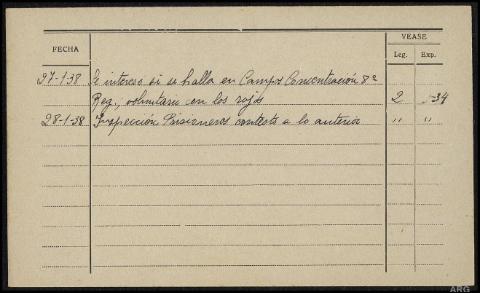 VEASE
FECHA
Leg. Exp.
27-1-38 Se interesa si se halla en Campos Concentración 8ª
Reg., voluntario en los rojos 2 34
28-1-38 Inspección Prisioneros contesta a lo anterior " "
ARG